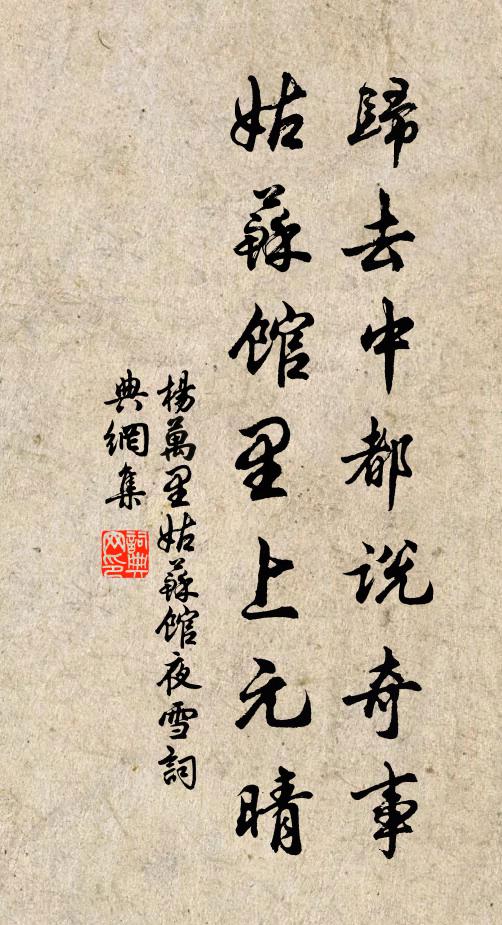 歸去中都說奇事
姑蘇館里上元晴
楊萬里姑蘇館夜雪詞
典網集
詞典網印